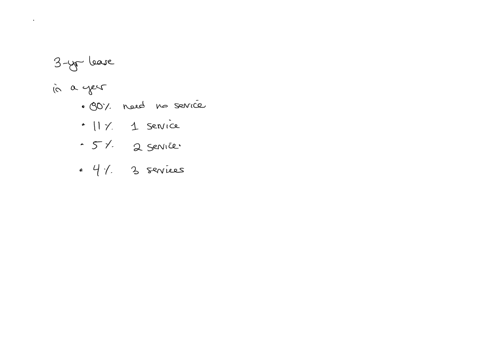 3-yr lease
in a year
• 80% need no service
• 11% 1 service
• 5% 2 services
• 4% 3 services